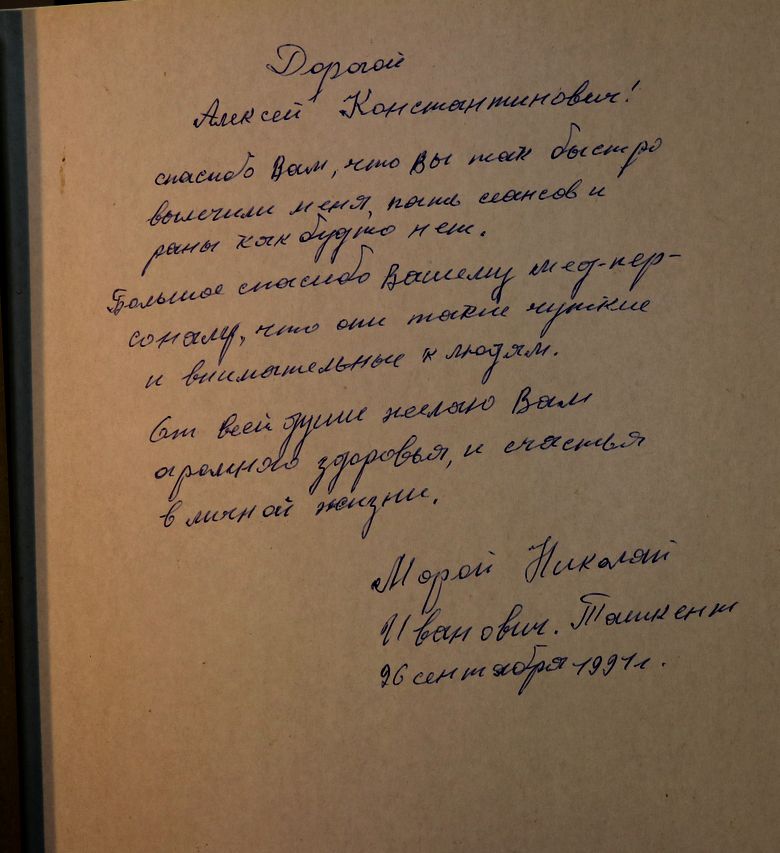 Дорогой
Алексей Константинович!
спасибо Вам, что Вы так быстро
вылечили меня, пять сеансов и
раны как будто нет.
Большое спасибо Вашему мед-пер-
соналу, что они такие чуткие
и внимательные к людям.
От всей души желаю Вам
огромного здоровья, и счастья
в личной жизни.
Морой Николай
Иванович. Ташкент
26 сентября 1991г.